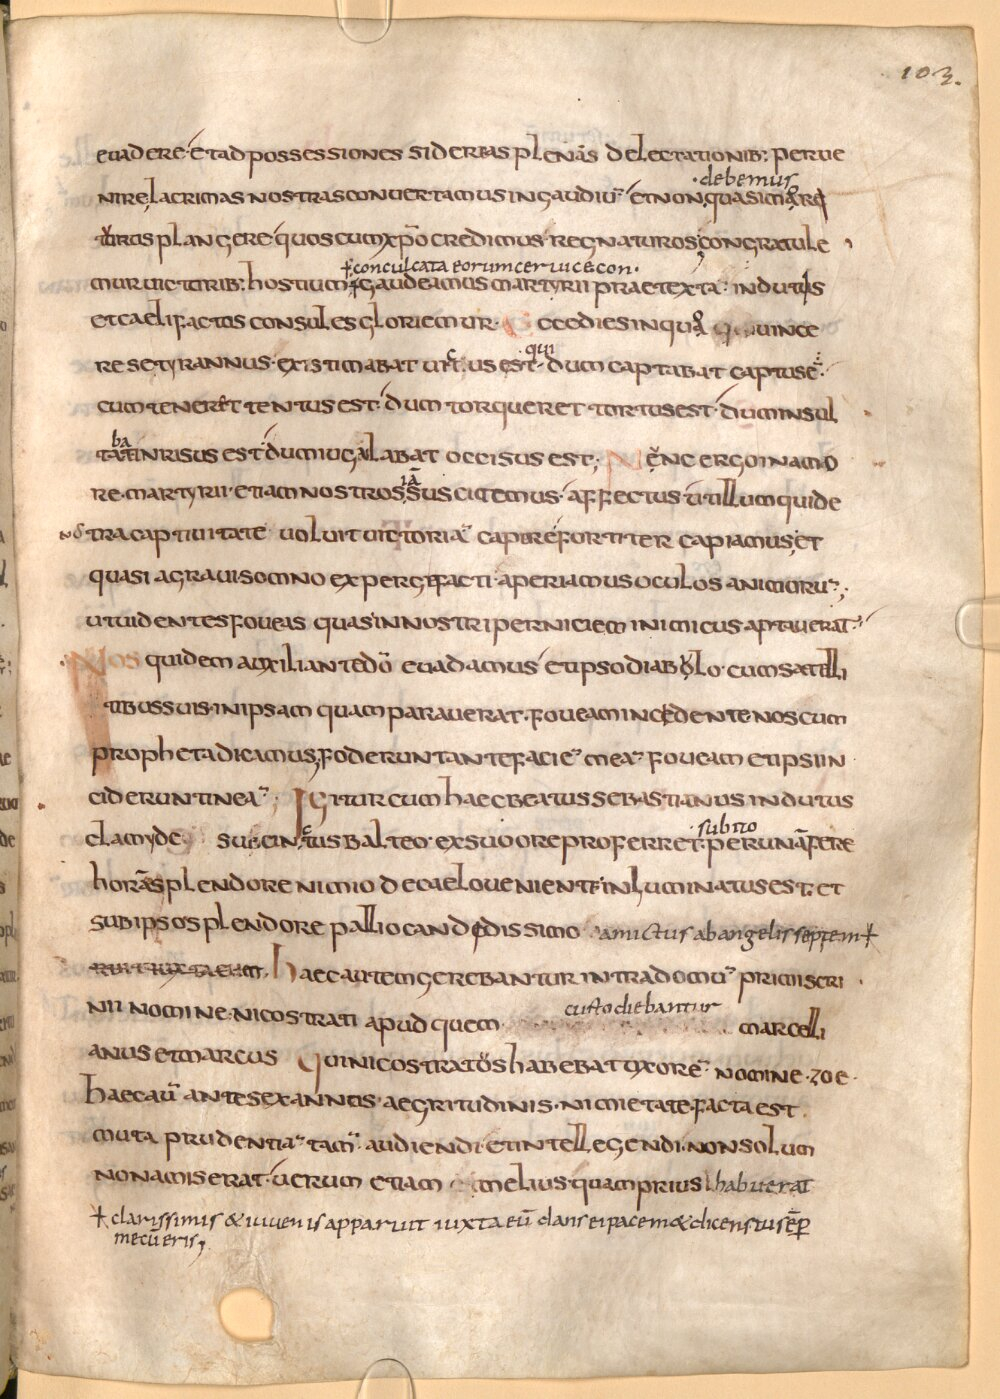 103.
euadere· et ad possessiones sidereas plenas delectationib: perue
·debemus
nire, lacrimas nostras conuertamus in gaudiū· et non quasi moreñ
turos plangere· quos cum xp̄o credimus· regnaturos, congratule
conculcata eorum ceruice con·
mur uictorib: hostium gaudeamus martyrii praetexta· induti
et caeli factos consules gloriemur· Ecce dies in quo qui uince
qui
re se tyrannus· existimabat uictus est· dum captabat captus ē·
cum teneret tentus est· dum torqueret tortus est· dum insul
ba
tat inrisus est· dum iugulabat occisus est; Nunc ergo in amo
re· martyrii· etiam nostros suscitemus· affectus· ut illum qui de
nostra captiuitate uoluit uictoriā capere fortiter capiamus, et
quasi a graui somno expergefacti· aperiamus oculos animorū·;
ut uidentes foueas quas in nostri perniciem inimicus aptauerat·
Nos quidem auxiliante dō euadamus· et ipso diabulo· cum satelli
tibus suis· in ipsam quam parauerat· foueam incedente nos cum
propheta dicamus, foderunt ante faciē meā foueam et ipsi in
ciderunt in eā; Igitur cum haec beatus sebastianus indutus
subito
clamyde succinctus balteo· ex suo ore proferret· per unā fere
horā splendore nimio de caelo ueniente inluminatus est· et
sub ipso splendore pallio candidissimo amictus ab angelis septem
rui iuxta eum. haec autem gerebantur intra domū primiscri
custodiebantur
nii nomine· nicostrati apud quem marcelli
anus et marcus Qui nicostratus habebat uxorē nomine· zoe·
haec aū ante sex annos· aegritudinis· nimietate· facta est
muta prudentiā tam̄· audiendi· et intellegendi· non solum
non amiserat· uerum etiam melius· quam prius habuerat
clarissimis & iuuenis apparuit iuxta eū dans ei pacem & dicens tu sēp
mecū eris,